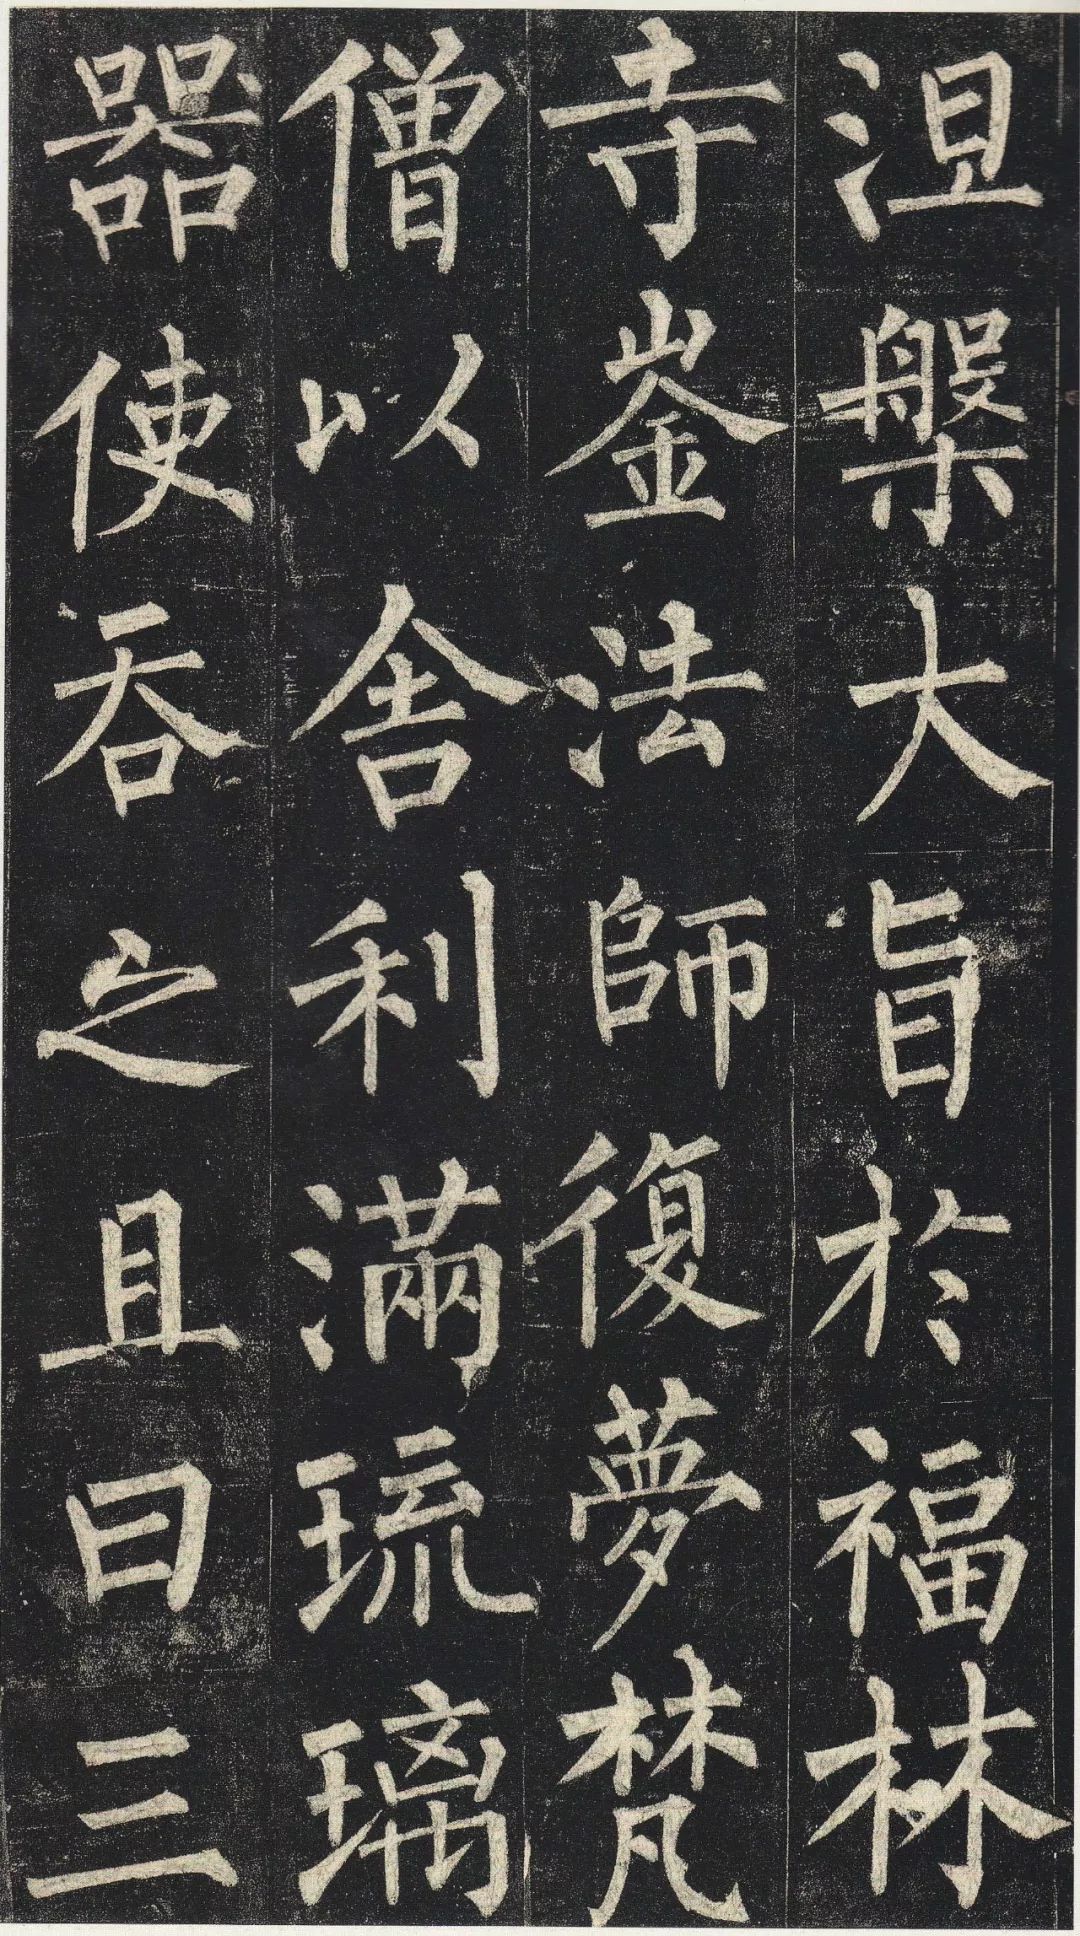 涅槃大旨於福林
寺崟法師復夢梵
僧以舍利滿琉璃
器使吞之且曰三